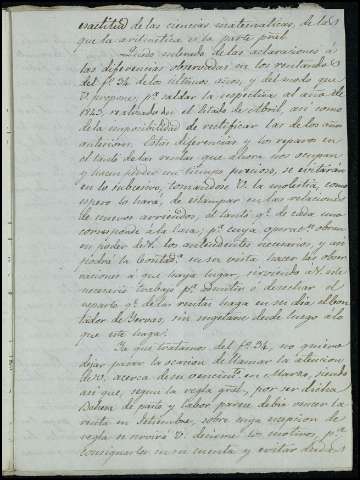 exactitud de las ciencias matematicas, de las
que la aritmetica es la parte pral.
Quedo enterado de las aclaraciones á
las diferencias observadas en los rentados
del fº. 34 de los ultimos años, y del modo que
V. propone, pª. saldar la respectiva al año de
1843, en el Estado de Abril, asi como
de la imposibilidad de rectificar las de los años
anteriores. Estas diferencias y los reparos en
el tanto de las rentas que ahora nos ocupan
y hacen perder un tiempo precioso, se evitarán
en lo subcesivo, tomandose V. la molestia, como
espero lo hará, de estampar en las relaciones
de nuevos arriendos, el tanto qe. de cada uno
corresponde á la Casa; pª. cuya operacn. obran
en poder de V. los antecedentes necesarios, y asi
podrá la Contadª. en su vista hacer las obser-
naciones á que haya lugar, sirviendo á V. este
necesario trabajo pª. admitir ó desechar el
reparto qe. de las rentas haga en su dia el Con-
tador de Yervas, sin sugetarse desde luego á lo
que este haga.
Ya que tratamos del fº. 34, no quiero
dejar pasar la ocasion de llamar la atencion
de V. acerca de su vencimto. en Marzo, siendo
asi que, segun la regla gral, por ser dicha
Dehesa de pasto y labor, parece debia vencer la
renta en Setiembre, sobre cuya escepcion de
regla se servirá V. decirme los motivos, pª.
consignarlos en su cuenta y evitar dudas